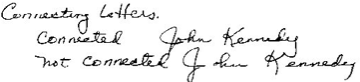 Connecting Letters.
Connected John Kennedy
not connected J ohn Kennedy